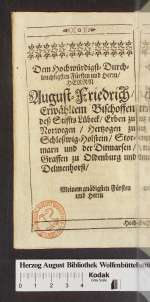 Dem Hochwürdigst-Durch-
leuchtigsten Fürsten und Herrn/
HERRN
August-Friedrich/
Erwähltem Bischoffen
deß Stiffts Lübeck/ Erben zu
Norwegen/ Hertzogen zu
Schleßwig-Holstein/ Stor-
marn und der Ditmarsen/
Graffen zu Oldenburg und
Delmenhorst/
Meinem gnädigsten Fürsten
und Herrn
Herzog August Bibliothek Wolfenbüttel
Kodak